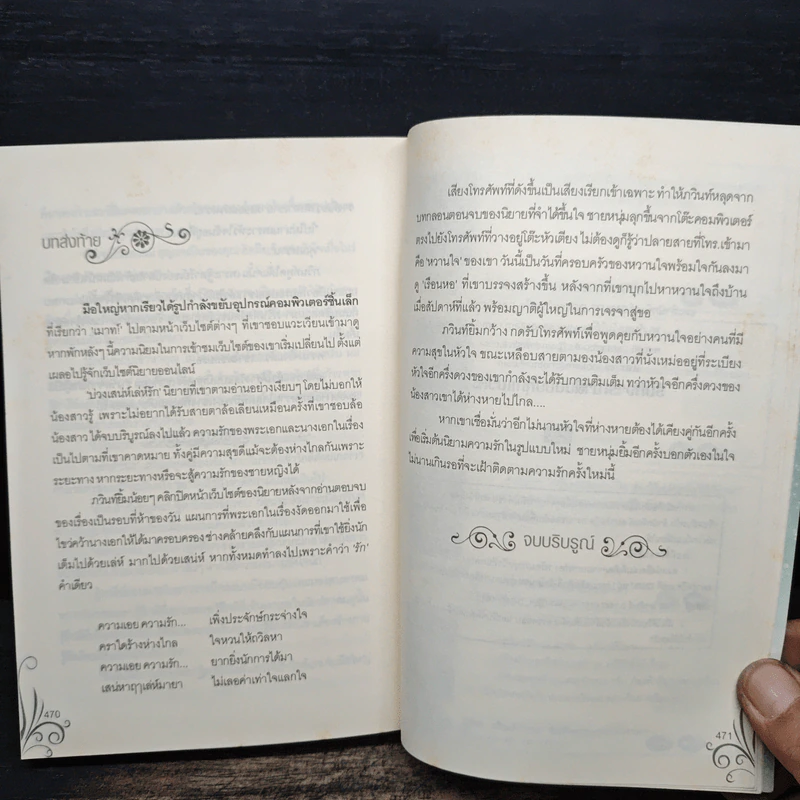 บทส่งท้าย
มือใหญ่หากเรียวได้รูปกำลังขยับอุปกรณ์คอมพิวเตอร์ชิ้นเล็ก
ที่เรียกว่า 'เมาท์' ไปตามหน้าเว็บไซต์ต่างๆ ที่เขาชอบแวะเวียนเข้ามาดู
หากพักหลังๆ นี้ความนิยมในการเข้าชมเว็บไซต์ของเขาเริ่มเปลี่ยนไป ตั้งแต่
เผลอไปรู้จักเว็บไซต์นิยายออนไลน์
'บ่วงเสน่ห์เล่ห์รัก' นิยายที่เขาตามอ่านอย่างเงียบๆ โดยไม่บอกให้
น้องสาวรู้ เพราะไม่อยากได้รับสายตาล้อเลียนเหมือนครั้งที่เขาชอบล้อ
น้องสาว ได้จบบริบูรณ์ลงไปแล้ว ความรักของพระเอกและนางเอกในเรื่อง
เป็นไปตามที่เขาคาดหมาย ทั้งคู่มีความสุขดีแม้จะต้องห่างไกลกันเพราะ
ระยะทาง หากระยะทางหรือจะสู้ความรักของชายหญิงได้
ภวินท์ยิ้มน้อยๆ คลิกปิดหน้าเว็บไซต์ของนิยายหลังจากอ่านตอนจบ
ของเรื่องเป็นรอบที่ห้าของวัน แผนการที่พระเอกในเรื่องงัดออกมาใช้เพื่อ
ไขว่คว้านางเอกให้ได้มาครอบครอง ช่างคล้ายคลึงกับแผนการที่เขาใช้ยิ่งนัก
เต็มไปด้วยเล่ห์ มากไปด้วยเสน่ห์ หากทั้งหมดทำลงไปเพราะคำว่า 'รัก'
คำเดียว
ความเอย ความรัก... เพิ่งประจักษ์กระจ่างใจ
คราใดร้างห่างไกล ใจหวนให้ถวิลหา
ความเอย ความรัก... ยากยิ่งนักการได้มา
เสน่หาฤๅเล่ห์มายา ไม่เลอค่าเท่าใจแลกใจ
470
เสียงโทรศัพท์ที่ดังขึ้นเป็นเสียงเรียกเข้าเฉพาะ ทำให้ภวินท์หลุดจาก
บทกลอนตอนจบของนิยายที่จำได้ขึ้นใจ ชายหนุ่มลุกขึ้นจากโต๊ะคอมพิวเตอร์
ตรงไปยังโทรศัพท์ที่วางอยู่โต๊ะหัวเตียง ไม่ต้องดูก็รู้ว่าปลายสายที่โทร.เข้ามา
คือ 'หวานใจ' ของเขา วันนี้เป็นวันที่ครอบครัวของหวานใจพร้อมใจกันลงมา
ดู 'เรือนหอ' ที่เขาบรรจงสร้างขึ้น หลังจากที่เขาบุกไปหาหวานใจถึงบ้าน
เมื่อสัปดาห์ที่แล้ว พร้อมญาติผู้ใหญ่ในการเจรจาสู่ขอ
ภวินท์ยิ้มกว้าง กดรับโทรศัพท์เพื่อพูดคุยกับหวานใจอย่างคนที่มี
ความสุขในหัวใจ ขณะเหลือบสายตามองน้องสาวที่นั่งเหม่ออยู่ที่ระเบียง
หัวใจอีกครึ่งดวงของเขากำลังจะได้รับการเติมเต็ม ทว่าหัวใจอีกครึ่งดวงของ
น้องสาวเขาได้ห่างหายไปไกล....
หากเขาเชื่อมั่นว่าอีกไม่นานหัวใจที่ห่างหายต้องได้เคียงคู่กันอีกครั้ง
เพื่อเริ่มต้นนิยามความรักในรูปแบบใหม่ ชายหนุ่มยิ้มอีกครั้งบอกตัวเองในใจ
ไม่นานเกินรอที่จะเฝ้าติดตามความรักครั้งใหม่นี้
จบบริบูรณ์
471